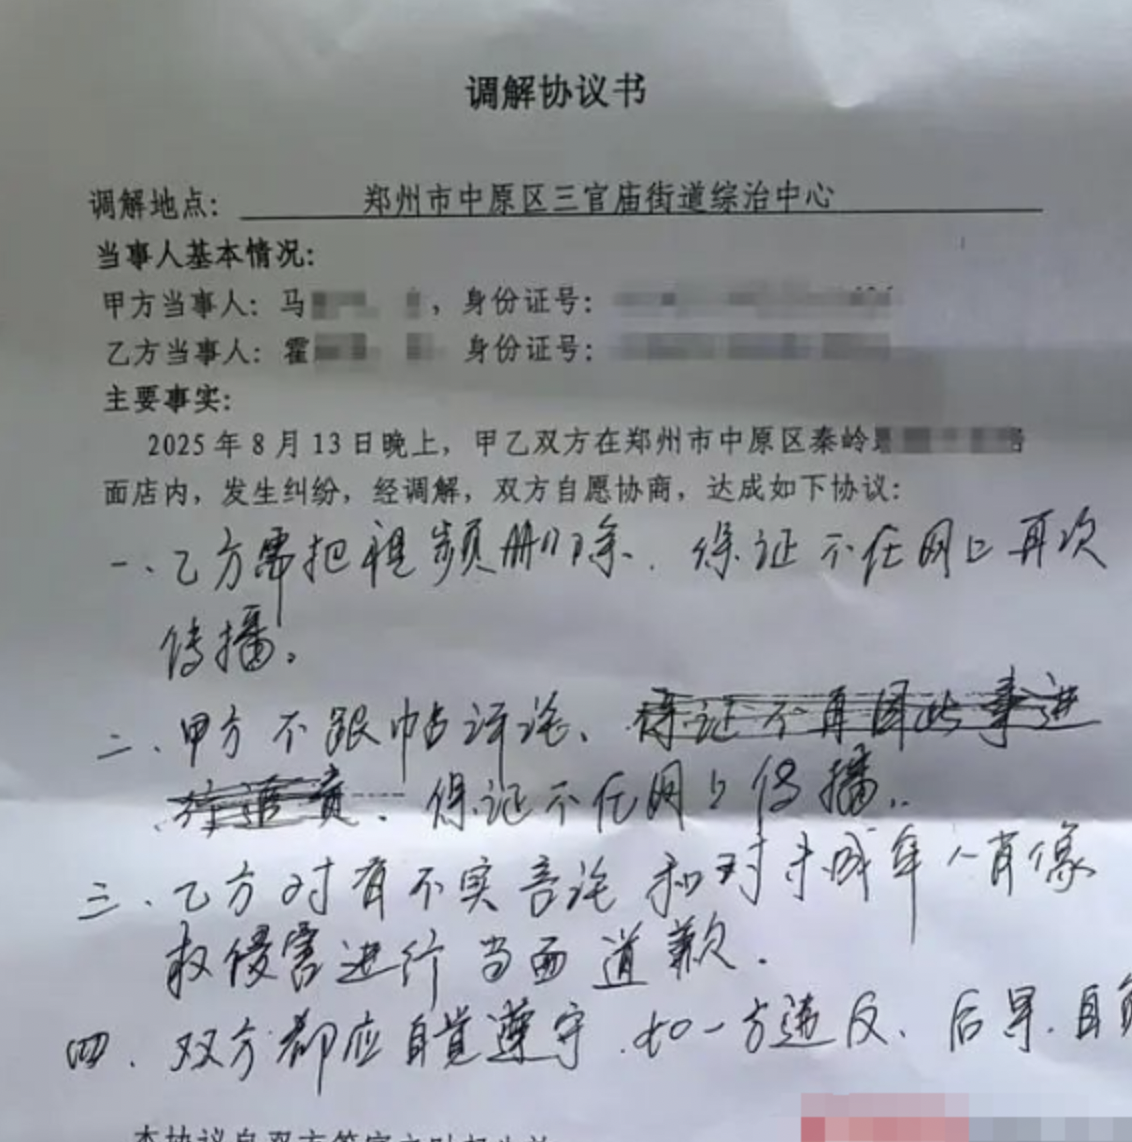 调解协议书
调解地点: 郑州市中原区三官庙街道综治中心
当事人基本情况:
甲方当事人: 马 , 身份证号:
乙方当事人: 霍 身份证号:
主要事实:
2025年8月13日晚上, 甲乙双方在郑州市中原区秦岭
面店内, 发生纠纷, 经调解, 双方自愿协商, 达成如下协议:
一、乙方需把视频删除. 保证不在网上再次
传播。
二、甲方不跟帖评论、保证不再因此事进
行追责. 保证不在网上传播.
三、乙方对有不实言论和对未成年人肖像
权侵害进行当面道歉.
四、双方都应自觉遵守. 如一方违反、后果.自负
本协议自双方签字之时起生效